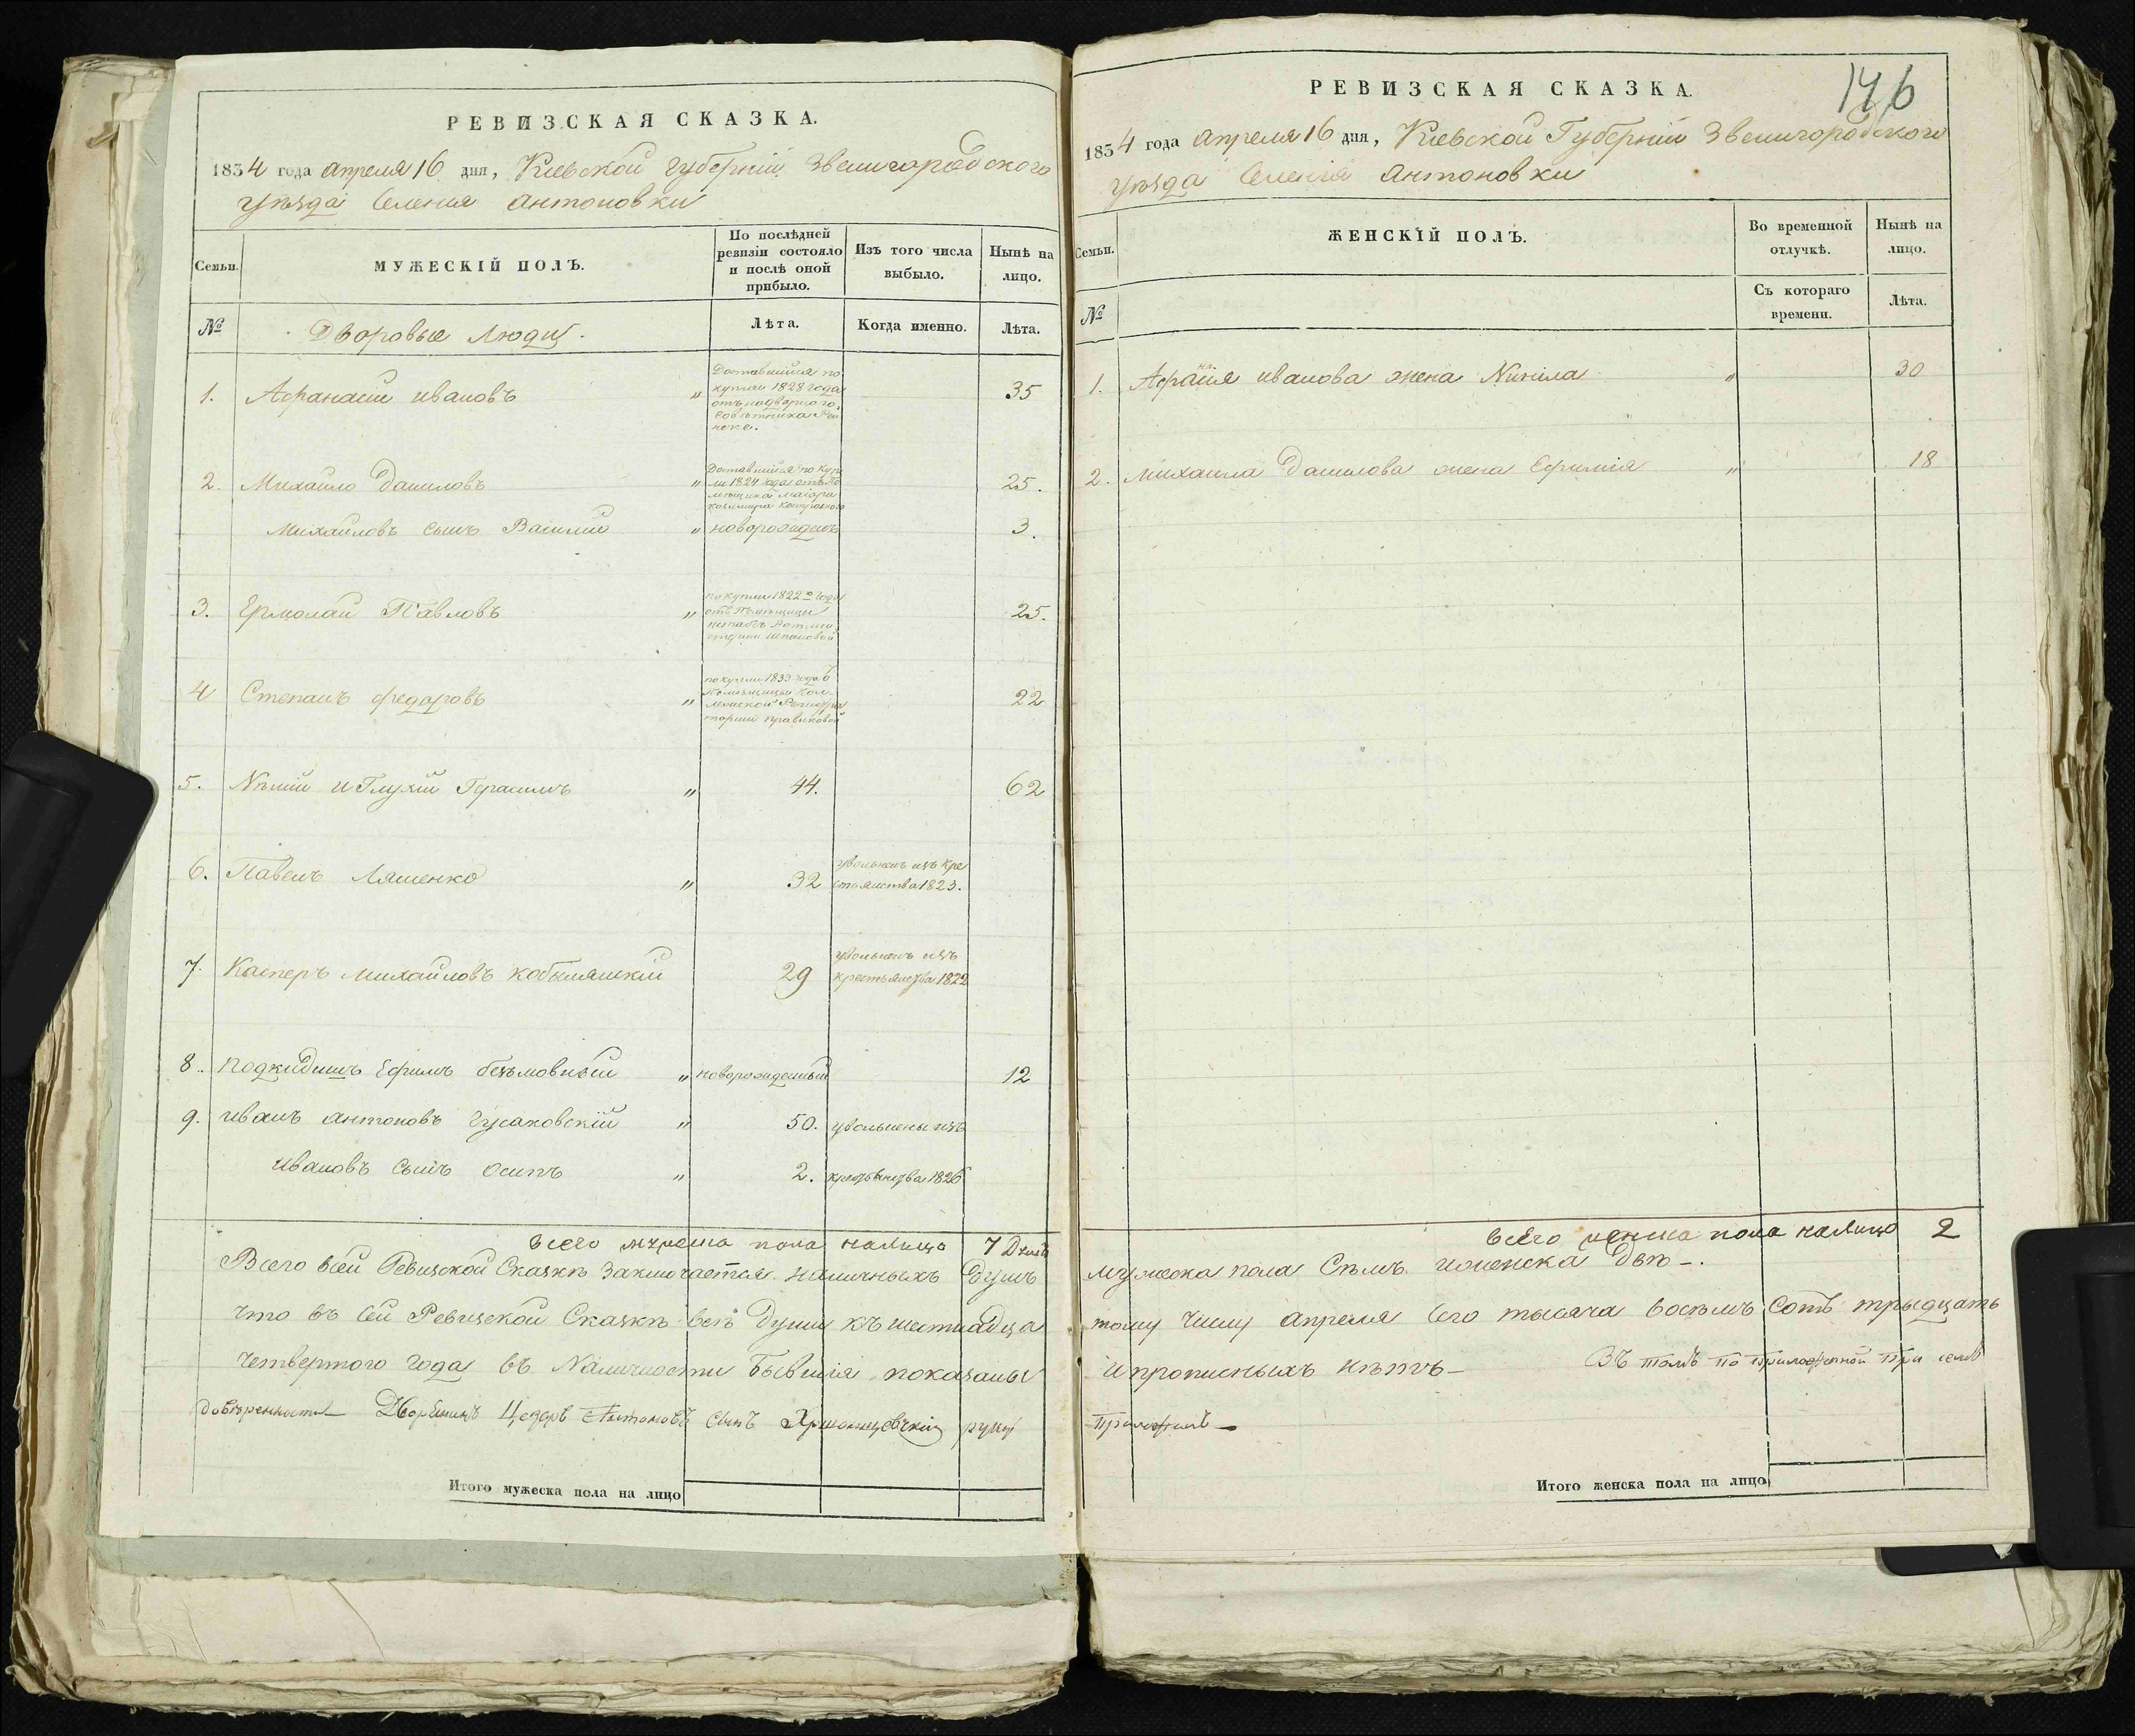 РЕВИЗСКАЯ СКАЗКА.
1834 года апреля 16 дня, Киевской губерніи Звенигородского
уѣзда Селенія Антоновки
Семьи.
МУЖЕСКІЙ ПОЛЪ.
По послѣдней ревизіи состояло и послѣ оной прибыло.
Изъ того числа выбыло.
Нынѣ на лицо.
№
Дворовые Люди.
Лѣта.
Когда именно.
Лѣта.
1. Афанасій ивановъ " Доставшійся по
купли 1828 года
отъ надворного
Совѣтника
35
2. Михайло Даниловъ " Доставшійся по куп
ли 1824 года отъ По
мѣщика маіора
казимира
25.
Михайловъ Сынъ Василій " новорожденъ 3.
3. Ермолай Павловъ " по купли 1822 года
отъ Помѣщицы
Шпаковой
25.
4 Степанъ федоровъ " по купли 1833 года
Помѣщицы Кол-
лежской Регистра
торши правиковой
22
5. Нѣмій и Глухій Герасимъ " 44. 62
6. Павелъ Ляшенко " 32 увольненъ изъ кре
стьянства 1823.
7. Касперъ михайловъ кобылянскій 29 увольненъ изъ
крестьянства 1822
8. подкидышъ Ефимъ безмовный " новорожденный 12
9. иванъ антоновъ Гусаковскій " 50. увольнены изъ
ивановъ Сынъ осипъ " 2. крестьянства 1826
всего мужеска пола налицо 7 Душъ
Всего всей Ревизской Сказкѣ Заключается наличныхъ Душъ
Что въ Сей Ревизской Сказкѣ всѣ Души къ шестнадца
четвертого года въ Наличности Бывшія показаны
довѣренности Дворянинъ Цезарь Антоновъ сынъ руку
Итого мужеска пола на лицо
РЕВИЗСКАЯ СКАЗКА.
146
1834 года апреля 16 дня, Киевской Губерніи Звенигородского
уѣзда Селенія антоновки
Семьи.
ЖЕНСКІЙ ПОЛЪ.
Во временной отлучкѣ.
Нынѣ на лицо.
№
Съ котораго времени.
Лѣта.
1. Афанасія иванова жена Нинила " 30
2. михаила Данилова жена Ефимія " 18
всего женска пола налицо 2
мужеска пола Сѣмъ иженска Двѣ-.
тому числу апреля сего тысяча восемъ сотъ трыдцать
ипрописныхъ нѣтъ- Въ томъ по приложенной при семъ
Приложилъ
Итого женска пола на лицо,